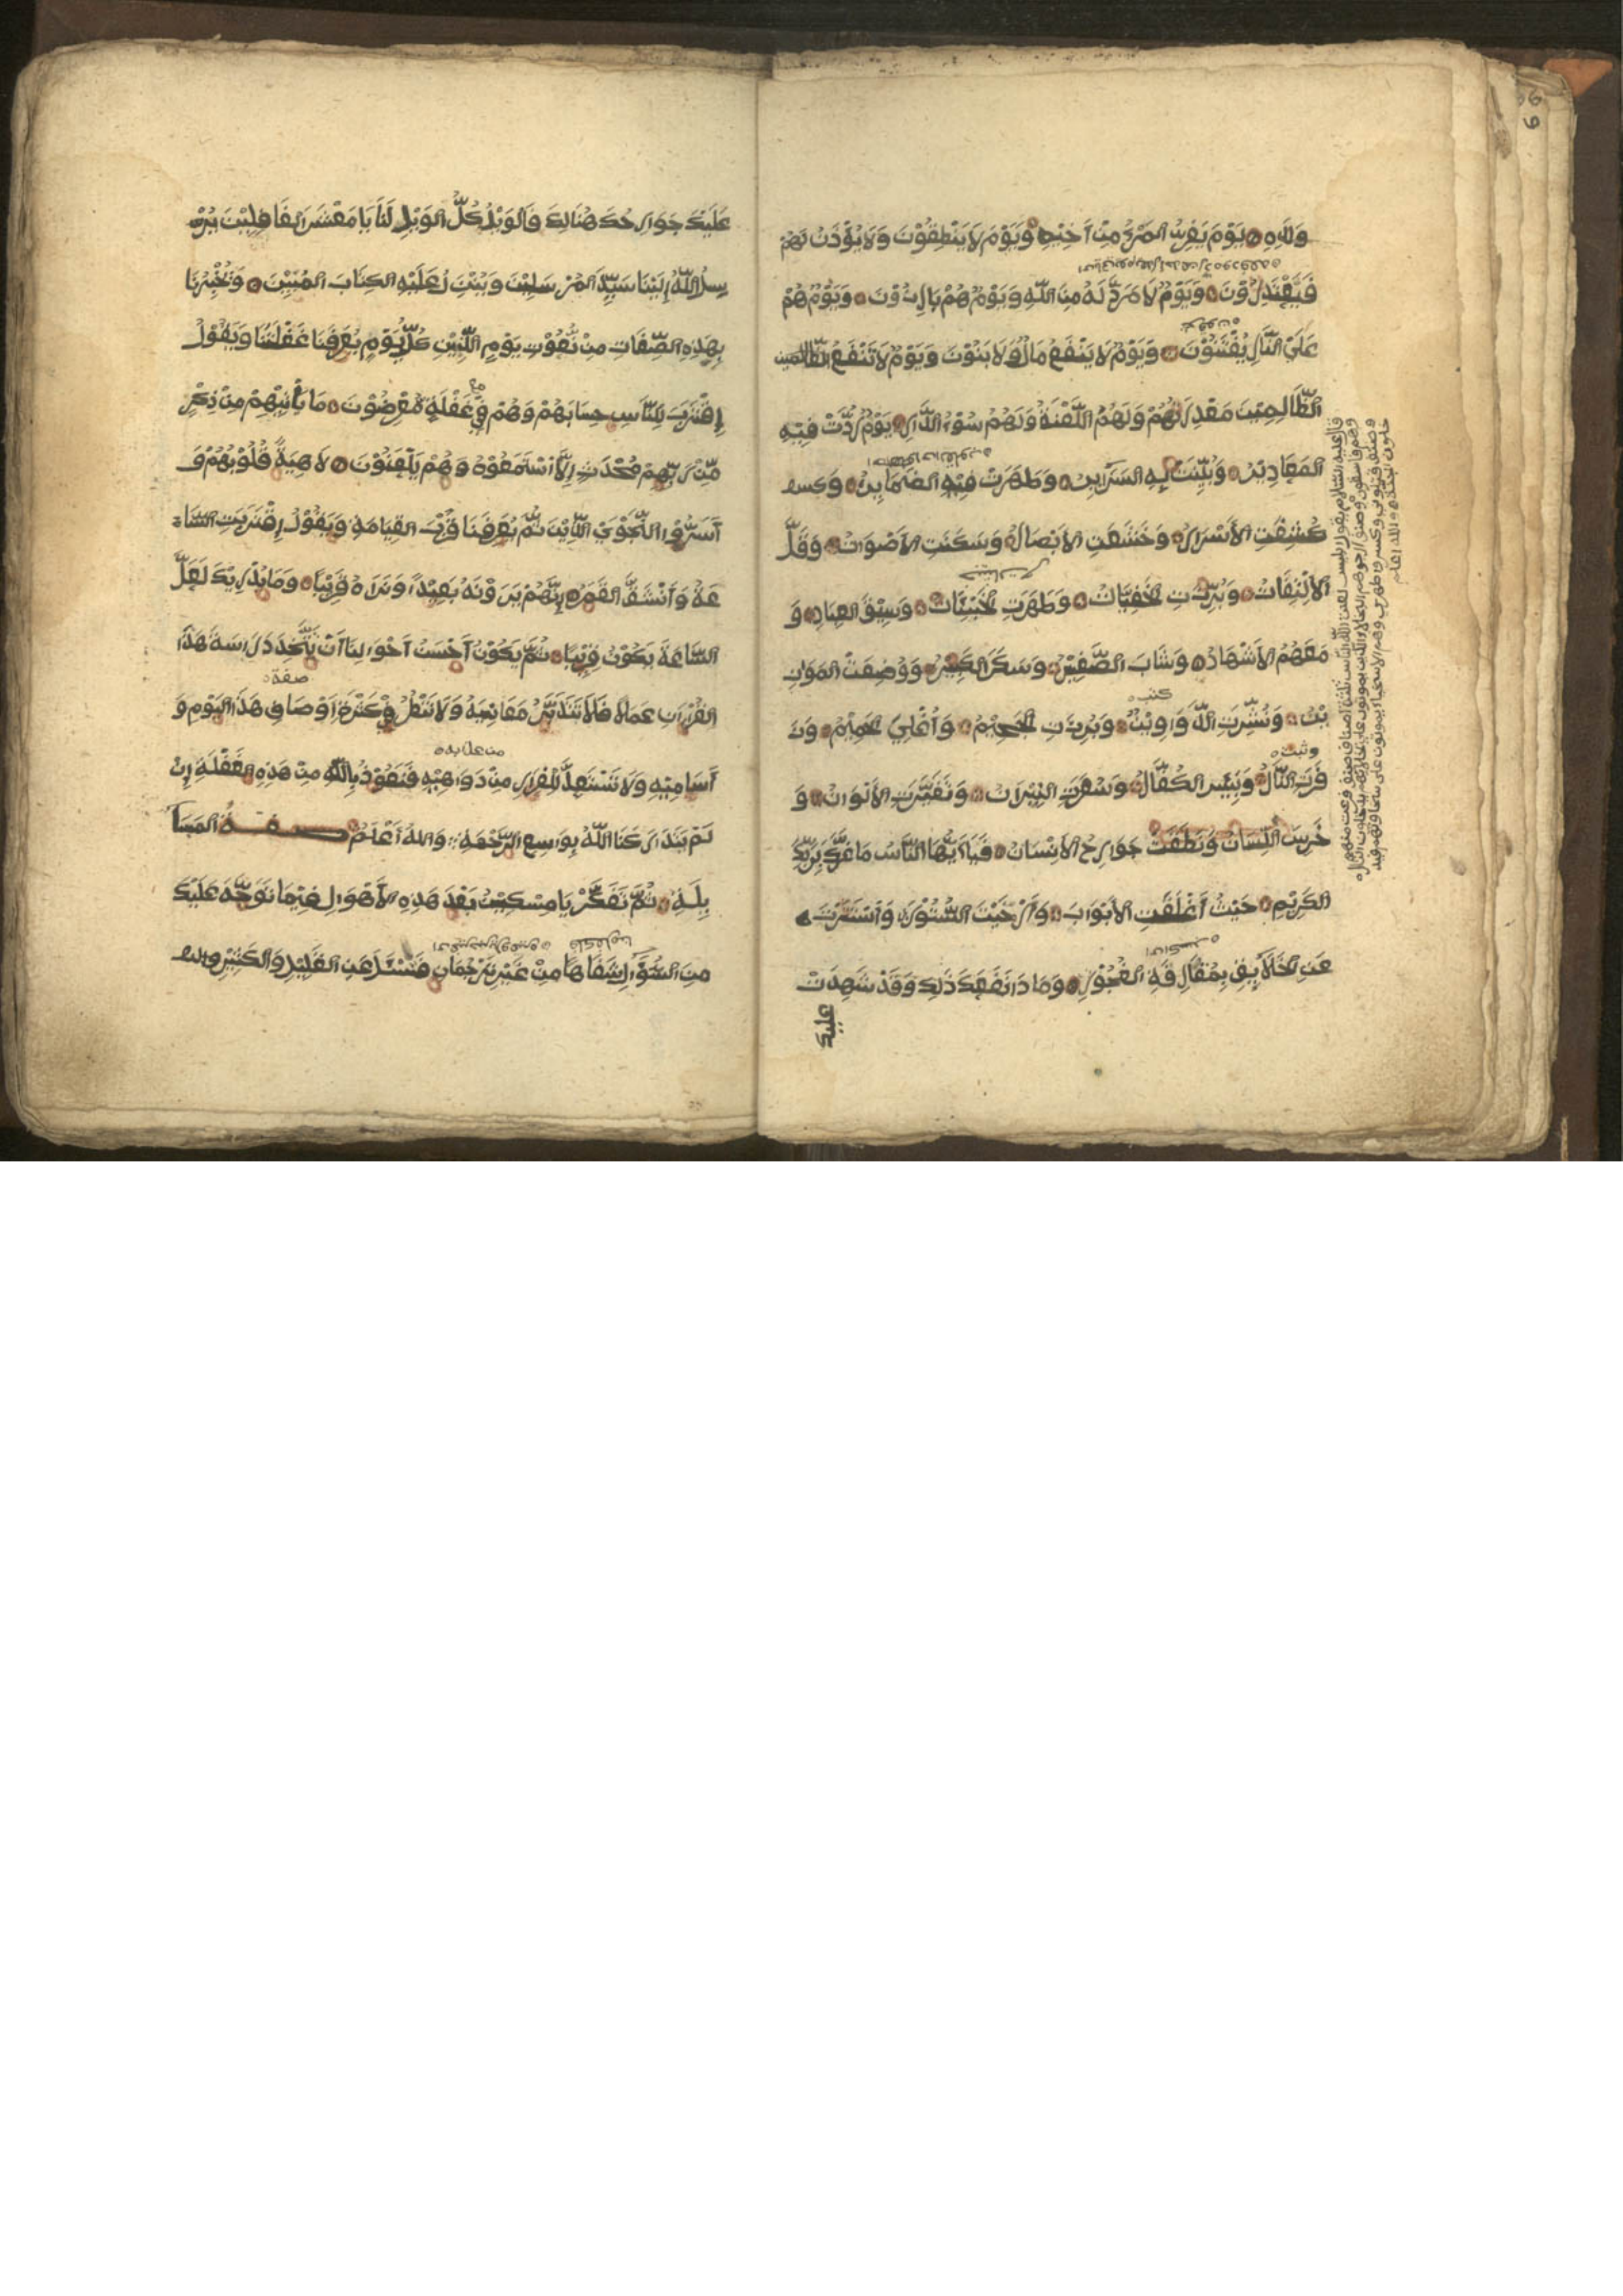 وَلَدِهِ ۝ يَوْمَ يَفِرُّ المَرْءُ مِنْ أَخِيْهِ وَيَوْمَ لَا يَنْطِقُوْنَ وَلَا يُؤْذَنُ لَهُمْ
فَيَعْتَذِرُوْنَ ۝ وَيَوْمَ لَا مَرَدَّ لَهُ مِنَ اللَّهِ وَيَوْمَ هُمْ بَارِزُوْنَ ۝ وَيَوْمَ هُمْ
عَلَى النَّارِ يُفْتَنُوْنَ ۝ وَيَوْمَ لَا يَنْفَعُ مَالٌ وَلَا بَنُوْنَ وَيَوْمَ لَا تَنْفَعُ الظالمين
الظَّالِمِيْنَ مَعْذِرَتُهُمْ وَلَهُمُ اللَّعْنَةُ وَلَهُمْ سُوْءُ الدَّارِ ۝ يَوْمَ رُدَّتْ فِيْهِ
المَعَاذِيْرُ ۝ وَبُلِيَتْ فِيْهِ السَّرَائِرُ ۝ وَظَهَرَتْ فِيْهِ الضَّمَائِرُ ۝
كُشِفَتِ الأَسْرَارُ ۝ وَخَشَعَتِ الأَبْصَارُ وَسَكَنَتِ الأَصْوَاتُ ۝ وَقَلَّ
الالْتِفَاتُ ۝ وَبُرِّزَتِ الخَفِيَّاتُ ۝ وَظَهَرَتِ الخَبِيْئَاتُ ۝ وَسِيْقَ العِبَادِ ۝ وَ
مَعَهُمُ الأَشْهَادُ ۝ وَشَابَ الصَّغِيْرُ ۝ وَسَكَرَ الكَبِيْرُ ۝ وَوُضِعَتْ المَوَازِ
يْنُ ۝ وَنُشِّرَتِ الدَّوَاوِيْنُ ۝ وَبُرِزَتِ الجَحِيْمُ ۝ وَأُغْلِيَ الحَمِيْمُ ۝ وَزَ
فَرَتِ النَّارُ ۝ وَيَئِسَ الكُفَّارُ ۝ وَسُعِّرَتِ النِّيْرَانُ ۝ وَتَغَيَّرَتِ الأَلْوَانُ ۝ وَ
خَرِسَ اللِّسَانُ وَنَطَقَتْ جَوَارِحُ الاِنْسَانُ ۝ فَيَا أَيُّهَا النَّاسُ مَا غَرَّكَ بِرَبِّكَ
الكَرِيْمِ ۝ حَيْثُ أَغْلَقْتِ الأَبْوَابَ ۝ وَأَرْخَيْتَ السُّتُوْرَ ۝ وَأَسْتَتَرْتَ
عَنِ الخَلَائِقِ الفُجُوْرِ ۝ وَمَاذَا نَفَعَكَ ذَلِكَ وَقَدْ شَهِدَتْ
عليك
عَلَيْكَ جَوَارِحُكَ هُنَالِكَ فَالوَيْلُ كُلُّ الوَيْلِ لَنَا يَا مَعْشَرَ الغَافِلِيْنَ يُرْ
سِلُ اللَّهُ إِلَيْنَا سَيِّدَ المُرْسَلِيْنَ وَيُنْزِلُ عَلَيْهِ الكِتَابَ المُبِيْنَ ۝ وَيُخْبِرُنَا
بِهَذِهِ الصِّفَاتِ مِنْ نُعُوْتِ يَوْمِ الدِّيْنِ كُلَّ يَوْمٍ يُعَرِّفُنَا غَفْلَتَنَا وَيَقُوْلُ
إِقْتَرَبَ لِلنَّاسِ حِسَابُهُمْ وَهُمْ فِيْ غَفْلَةٍ مُعْرِضُوْنَ ۝ مَا يَأْتِيْهِمْ مِنْ ذِكْرٍ
مِّنْ رَبِّهِمْ مُحْدَثٍ إِلَّا أَسْتَمَعُوْهُ وَهُمْ يَلْعَبُوْنَ ۝ لَاهِيَةً قُلُوْبُهُمْ وَ
أَسَرُّوْا النَّجْوَيْ الَّذِيْنَ ثُمَّ يُعَرِّفُنَا قُرْبَ القِيَامَةِ وَيَقُوْلُ إِقْتَرَبَتِ السَّا
عَةُ وَأَنْشَقَّ القَمَرُ ۝ إِنَّهُمْ يَرَوْنَهُ بَعِيْدًا وَنَرَاهُ قَرِيْبًا ۝ وَمَا يُدْرِيْكَ لَعَلَّ
السَّاعَةَ تَكُوْنُ قَرِيْبًا ۝ ثُمَّ يَكُوْنُ أَحْسَنُ أَحْوَالِنَا أَنْ نَتَّخِذَ دِرَاسَةَ هَذَا
القُرْءَانِ عَمَلًا فَلَا نَتَدَبَّرُ مَعَانِيَهُ وَلَا نَنْظُرُ فِيْ كَثْرَةِ أَوْصَافِ هَذَا اليَوْمِ وَ
أَسَامِيْهِ وَلَا نَسْتَعِدُّ لِلْفِرَارِ مِنْ دَوَاهِيْهِ فَنَعُوْذُ بِاللَّهِ مِنْ هَذِهِ الغَفْلَةِ إِنْ
لَمْ يَتَدَارَكْنَا اللَّهُ بِوَاسِعِ الرَّحْمَةِ وَاللهُ أَعْلَمُ صفة المَسَآ
ئِلَةِ ۝ ثُمَّ تَفَكَّرْ يَا مِسْكِيْنُ بَعْدَ هَذِهِ الأَهْوَالِ فِيْمَا تَوَجَّهَ عَلَيْكَ
مِنَ السُّؤَالِ شِفَاهًا مِنْ غَيْرِ تَرْجُمَانٍ فَتُسْئَلُ عَنِ القَلِيْلِ وَالكَثِيْرِ